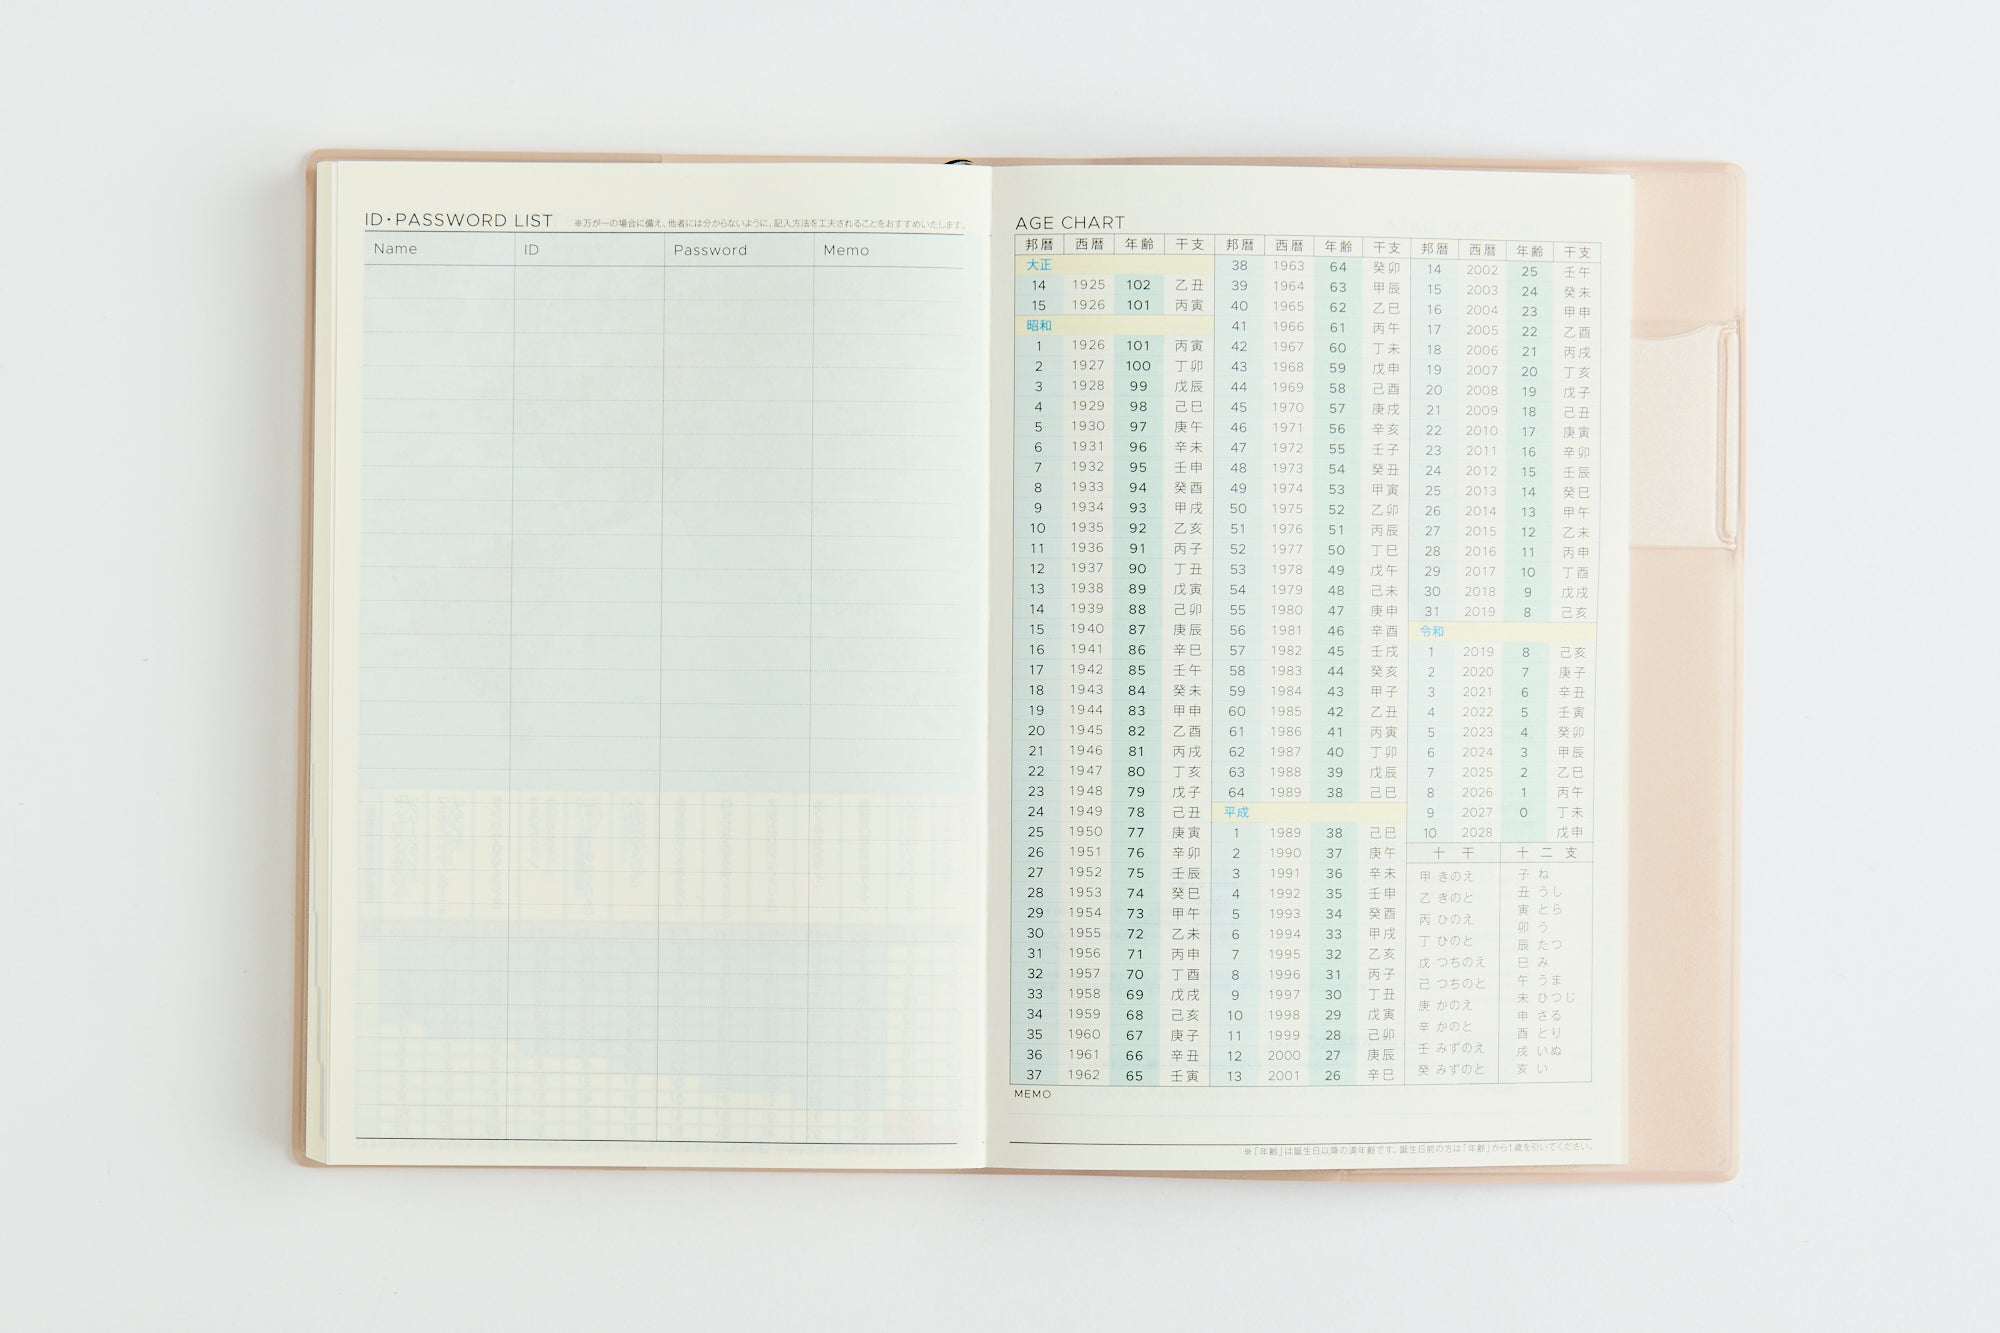 ID・PASSWORD LIST ※万が一の場合に備え、他者には分からないように、記入方法を工夫されることをおすすめいたします。
Name ID Password Memo
AGE CHART
邦暦 西暦 年齢 干支
大正
14 1925 102 乙丑
15 1926 101 丙寅
昭和
1 1926 101 丙寅
2 1927 100 丁卯
3 1928 99 戊辰
4 1929 98 己巳
5 1930 97 庚午
6 1931 96 辛未
7 1932 95 壬申
8 1933 94 癸酉
9 1934 93 甲戌
10 1935 92 乙亥
11 1936 91 丙子
12 1937 90 丁丑
13 1938 89 戊寅
14 1939 88 己卯
15 1940 87 庚辰
16 1941 86 辛巳
17 1942 85 壬午
18 1943 84 癸未
19 1944 83 甲申
20 1945 82 乙酉
21 1946 81 丙戌
22 1947 80 丁亥
23 1948 79 戊子
24 1949 78 己丑
25 1950 77 庚寅
26 1951 76 辛卯
27 1952 75 壬辰
28 1953 74 癸巳
29 1954 73 甲午
30 1955 72 乙未
31 1956 71 丙申
32 1957 70 丁酉
33 1958 69 戊戌
34 1959 68 己亥
35 1960 67 庚子
36 1961 66 辛丑
37 1962 65 壬寅
邦暦 西暦 年齢 干支
38 1963 64 癸卯
39 1964 63 甲辰
40 1965 62 乙巳
41 1966 61 丙午
42 1967 60 丁未
43 1968 59 戊申
44 1969 58 己酉
45 1970 57 庚戌
46 1971 56 辛亥
47 1972 55 壬子
48 1973 54 癸丑
49 1974 53 甲寅
50 1975 52 乙卯
51 1976 51 丙辰
52 1977 50 丁巳
53 1978 49 戊午
54 1979 48 己未
55 1980 47 庚申
56 1981 46 辛酉
57 1982 45 壬戌
58 1983 44 癸亥
59 1984 43 甲子
60 1985 42 乙丑
61 1986 41 丙寅
62 1987 40 丁卯
63 1988 39 戊辰
64 1989 38 己巳
平成
1 1989 38 己巳
2 1990 37 庚午
3 1991 36 辛未
4 1992 35 壬申
5 1993 34 癸酉
6 1994 33 甲戌
7 1995 32 乙亥
8 1996 31 丙子
9 1997 30 丁丑
10 1998 29 戊寅
11 1999 28 己卯
12 2000 27 庚辰
13 2001 26 辛巳
邦暦 西暦 年齢 干支
14 2002 25 壬午
15 2003 24 癸未
16 2004 23 甲申
17 2005 22 乙酉
18 2006 21 丙戌
19 2007 20 丁亥
20 2008 19 戊子
21 2009 18 己丑
22 2010 17 庚寅
23 2011 16 辛卯
24 2012 15 壬辰
25 2013 14 癸巳
26 2014 13 甲午
27 2015 12 乙未
28 2016 11 丙申
29 2017 10 丁酉
30 2018 9 戊戌
31 2019 8 己亥
令和
1 2019 8 己亥
2 2020 7 庚子
3 2021 6 辛丑
4 2022 5 壬寅
5 2023 4 癸卯
6 2024 3 甲辰
7 2025 2 乙巳
8 2026 1 丙午
9 2027 0 丁未
10 2028 戊申
十干
甲 きのえ
乙 きのと
丙 ひのえ
丁 ひのと
戊 つちのえ
己 つちのと
庚 かのえ
辛 かのと
壬 みずのえ
癸 みずのと
十二支
子 ね
丑 うし
寅 とら
卯 う
辰 たつ
巳 み
午 うま
未 ひつじ
申 さる
酉 とり
戌 いぬ
亥 い
MEMO
※「年齢」は誕生日以降の満年齢です。誕生日前の方は「年齢」から1歳を引いてください。